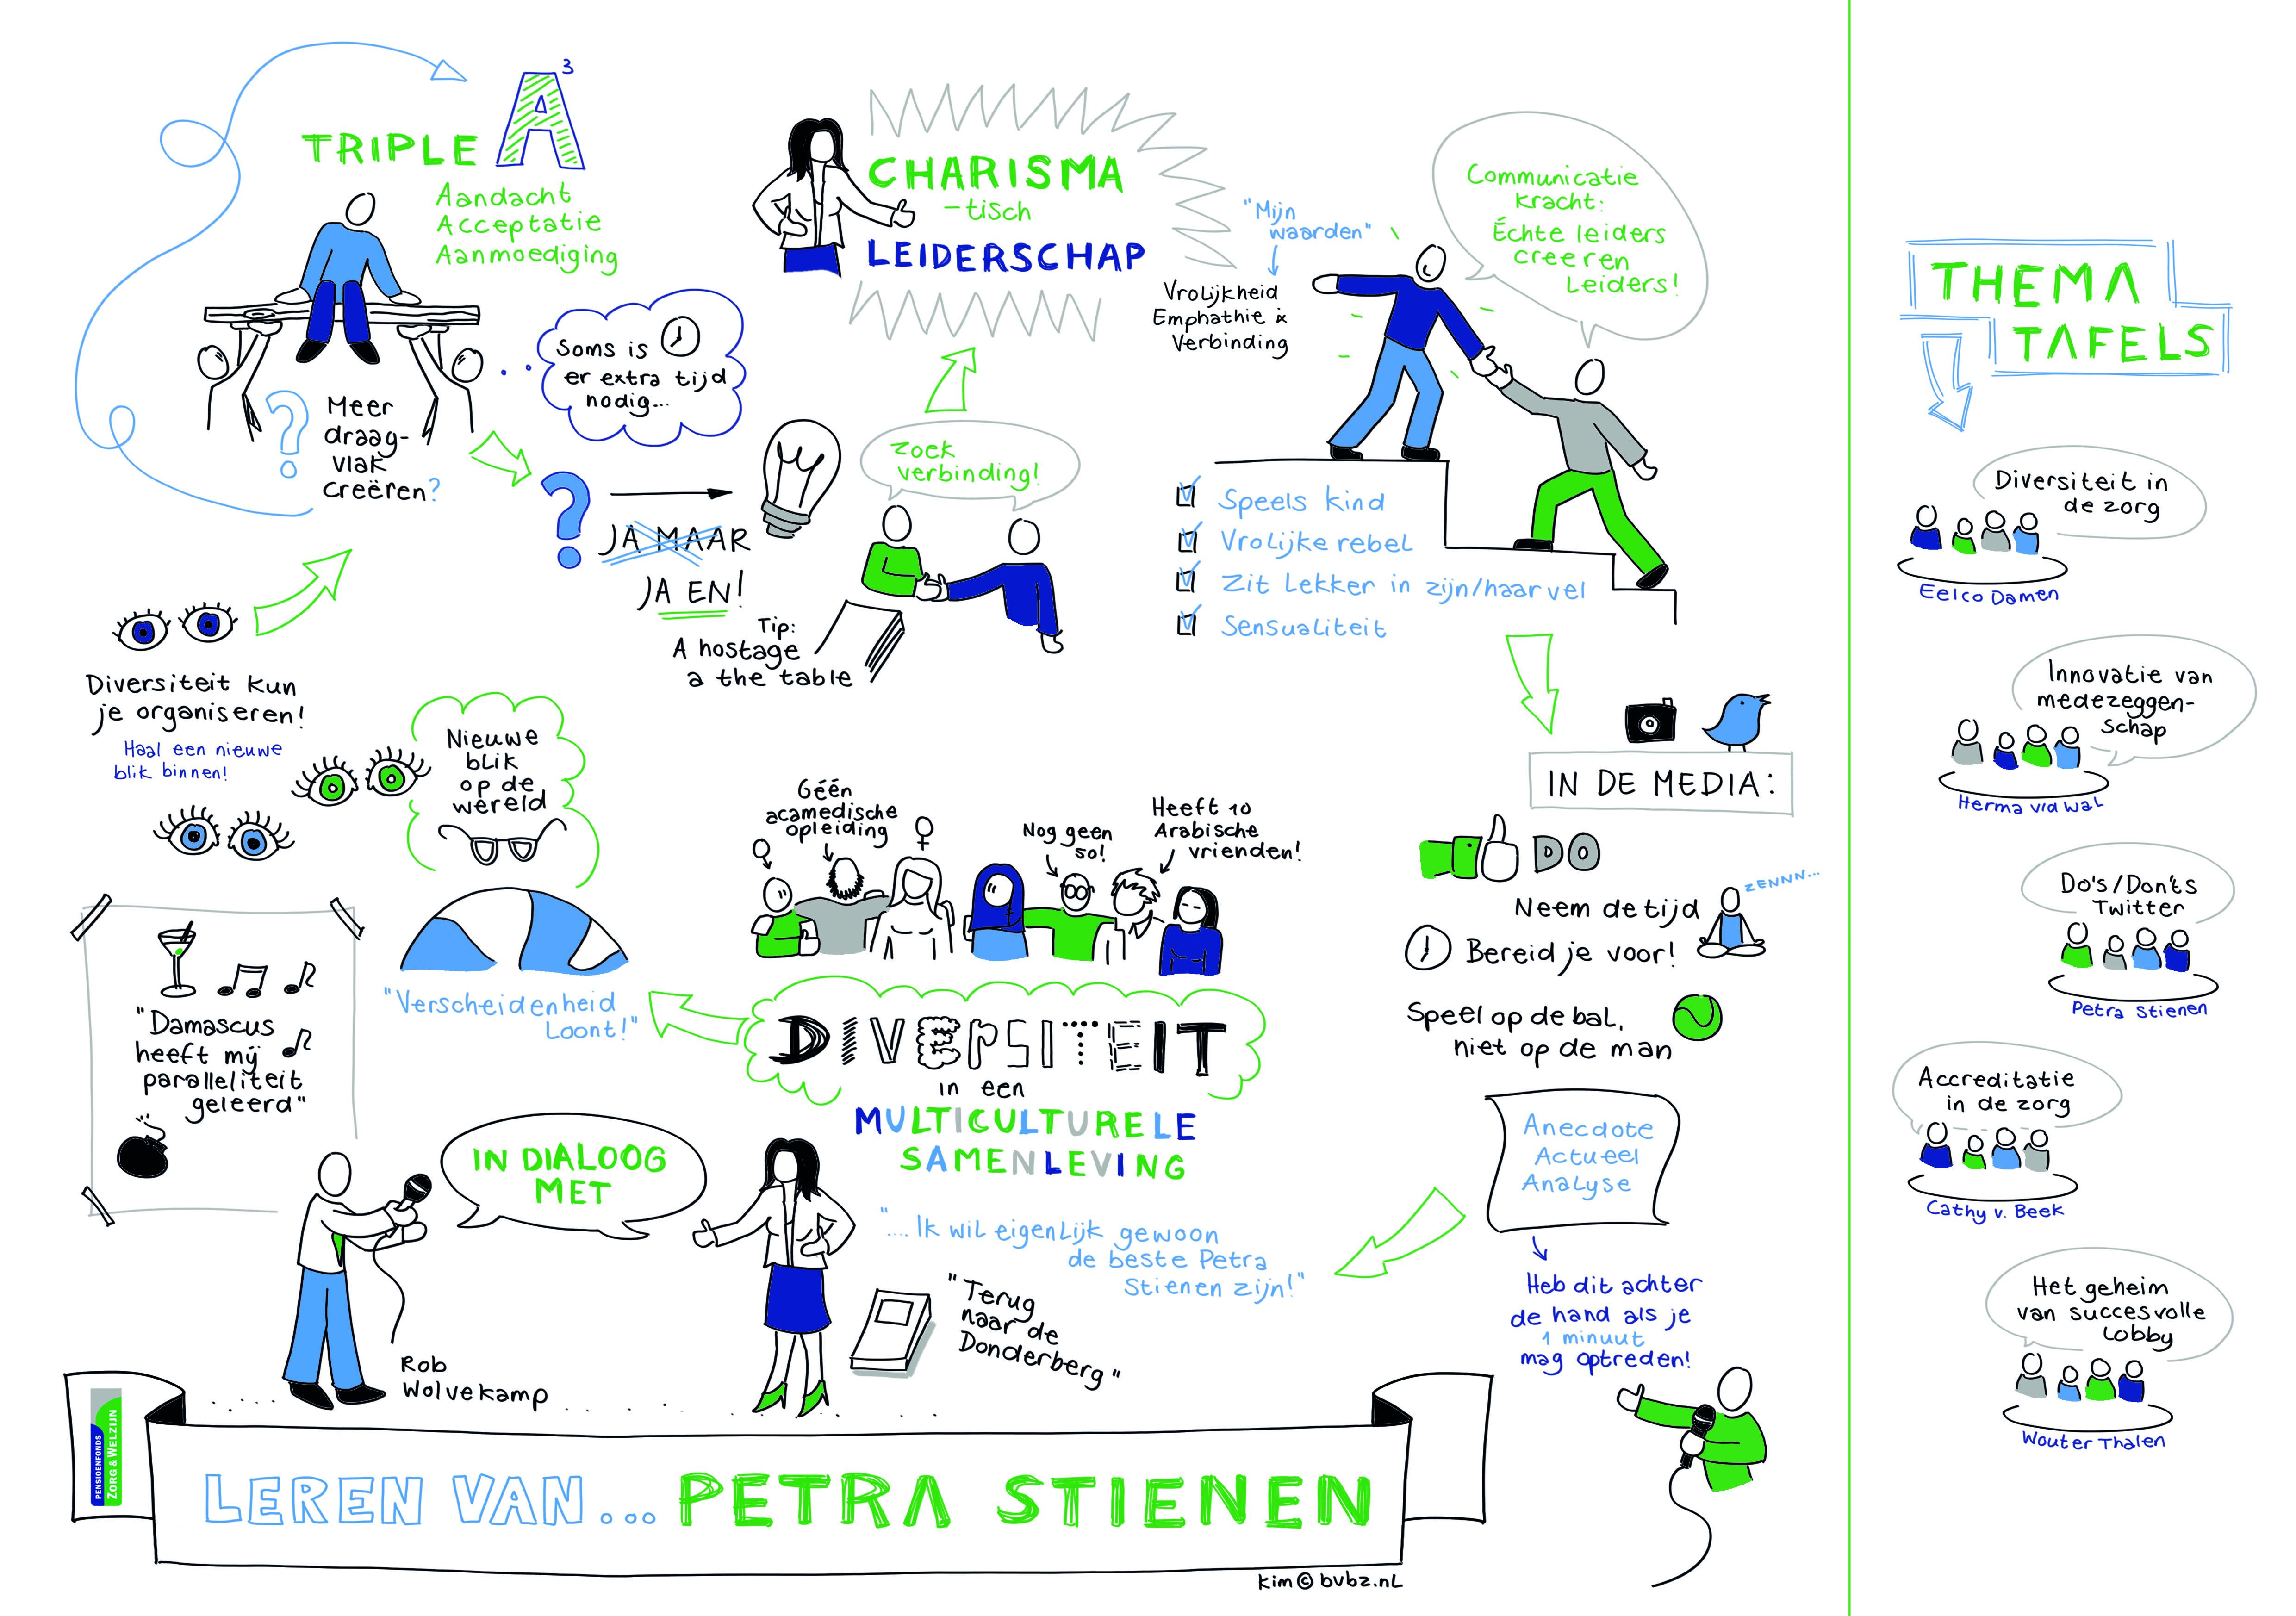 TRIPLE A³
Aandacht
Acceptatie
Aanmoediging
Soms is
er extra tijd
nodig...
? Meer
draag-
vlak
creëren?
?
JA MAAR
JA EN!
Tip:
A hostage
a the table
Zoek
verbinding!
CHARISMA
-tisch
LEIDERSCHAP
"Mijn
waarden"
Vrolijkheid
Emphathie &
Verbinding
Communicatie
kracht:
Échte leiders
creeren
Leiders!
Speels kind
Vrolijke rebel
Zit Lekker in zijn/haar vel
Sensualiteit
Diversiteit kun
je organiseren!
Haal een nieuwe
blik binnen!
Nieuwe
blik
op de
wereld
"Verscheidenheid
Loont!"
"Damascus
heeft mij
paralleliteit
geleerd"
Géén
acamedische
opleiding
Nog geen
50!
Heeft 10
Arabische
vrienden!
DIVERSITEIT
in een
MULTICULTURELE
SAMENLEVING
IN DIALOOG
MET
Rob
Wolvekamp
".... Ik wil eigenlijk gewoon
de beste Petra
Stienen zijn!"
"Terug
naar de
Donderberg"
IN DE MEDIA:
DO
Neem de tijd
ZENNN...
Bereid je voor!
Speel op de bal,
niet op de man
Anecdote
Actueel
Analyse
Heb dit achter
de hand als je
1 minuut
mag optreden!
PENSIOENFONDS
ZORG & WELZIJN
LEREN VAN... PETRA STIENEN
kim © bvbz.nl
THEMA
TAFELS
Diversiteit in
de zorg
Eelco Damen
Innovatie van
medezeggen-
schap
Herma vd Wal
Do's/Don'ts
Twitter
Petra Stienen
Accreditatie
in de zorg
Cathy v. Beek
Het geheim
van succesvolle
Lobby
Wouter Thalen